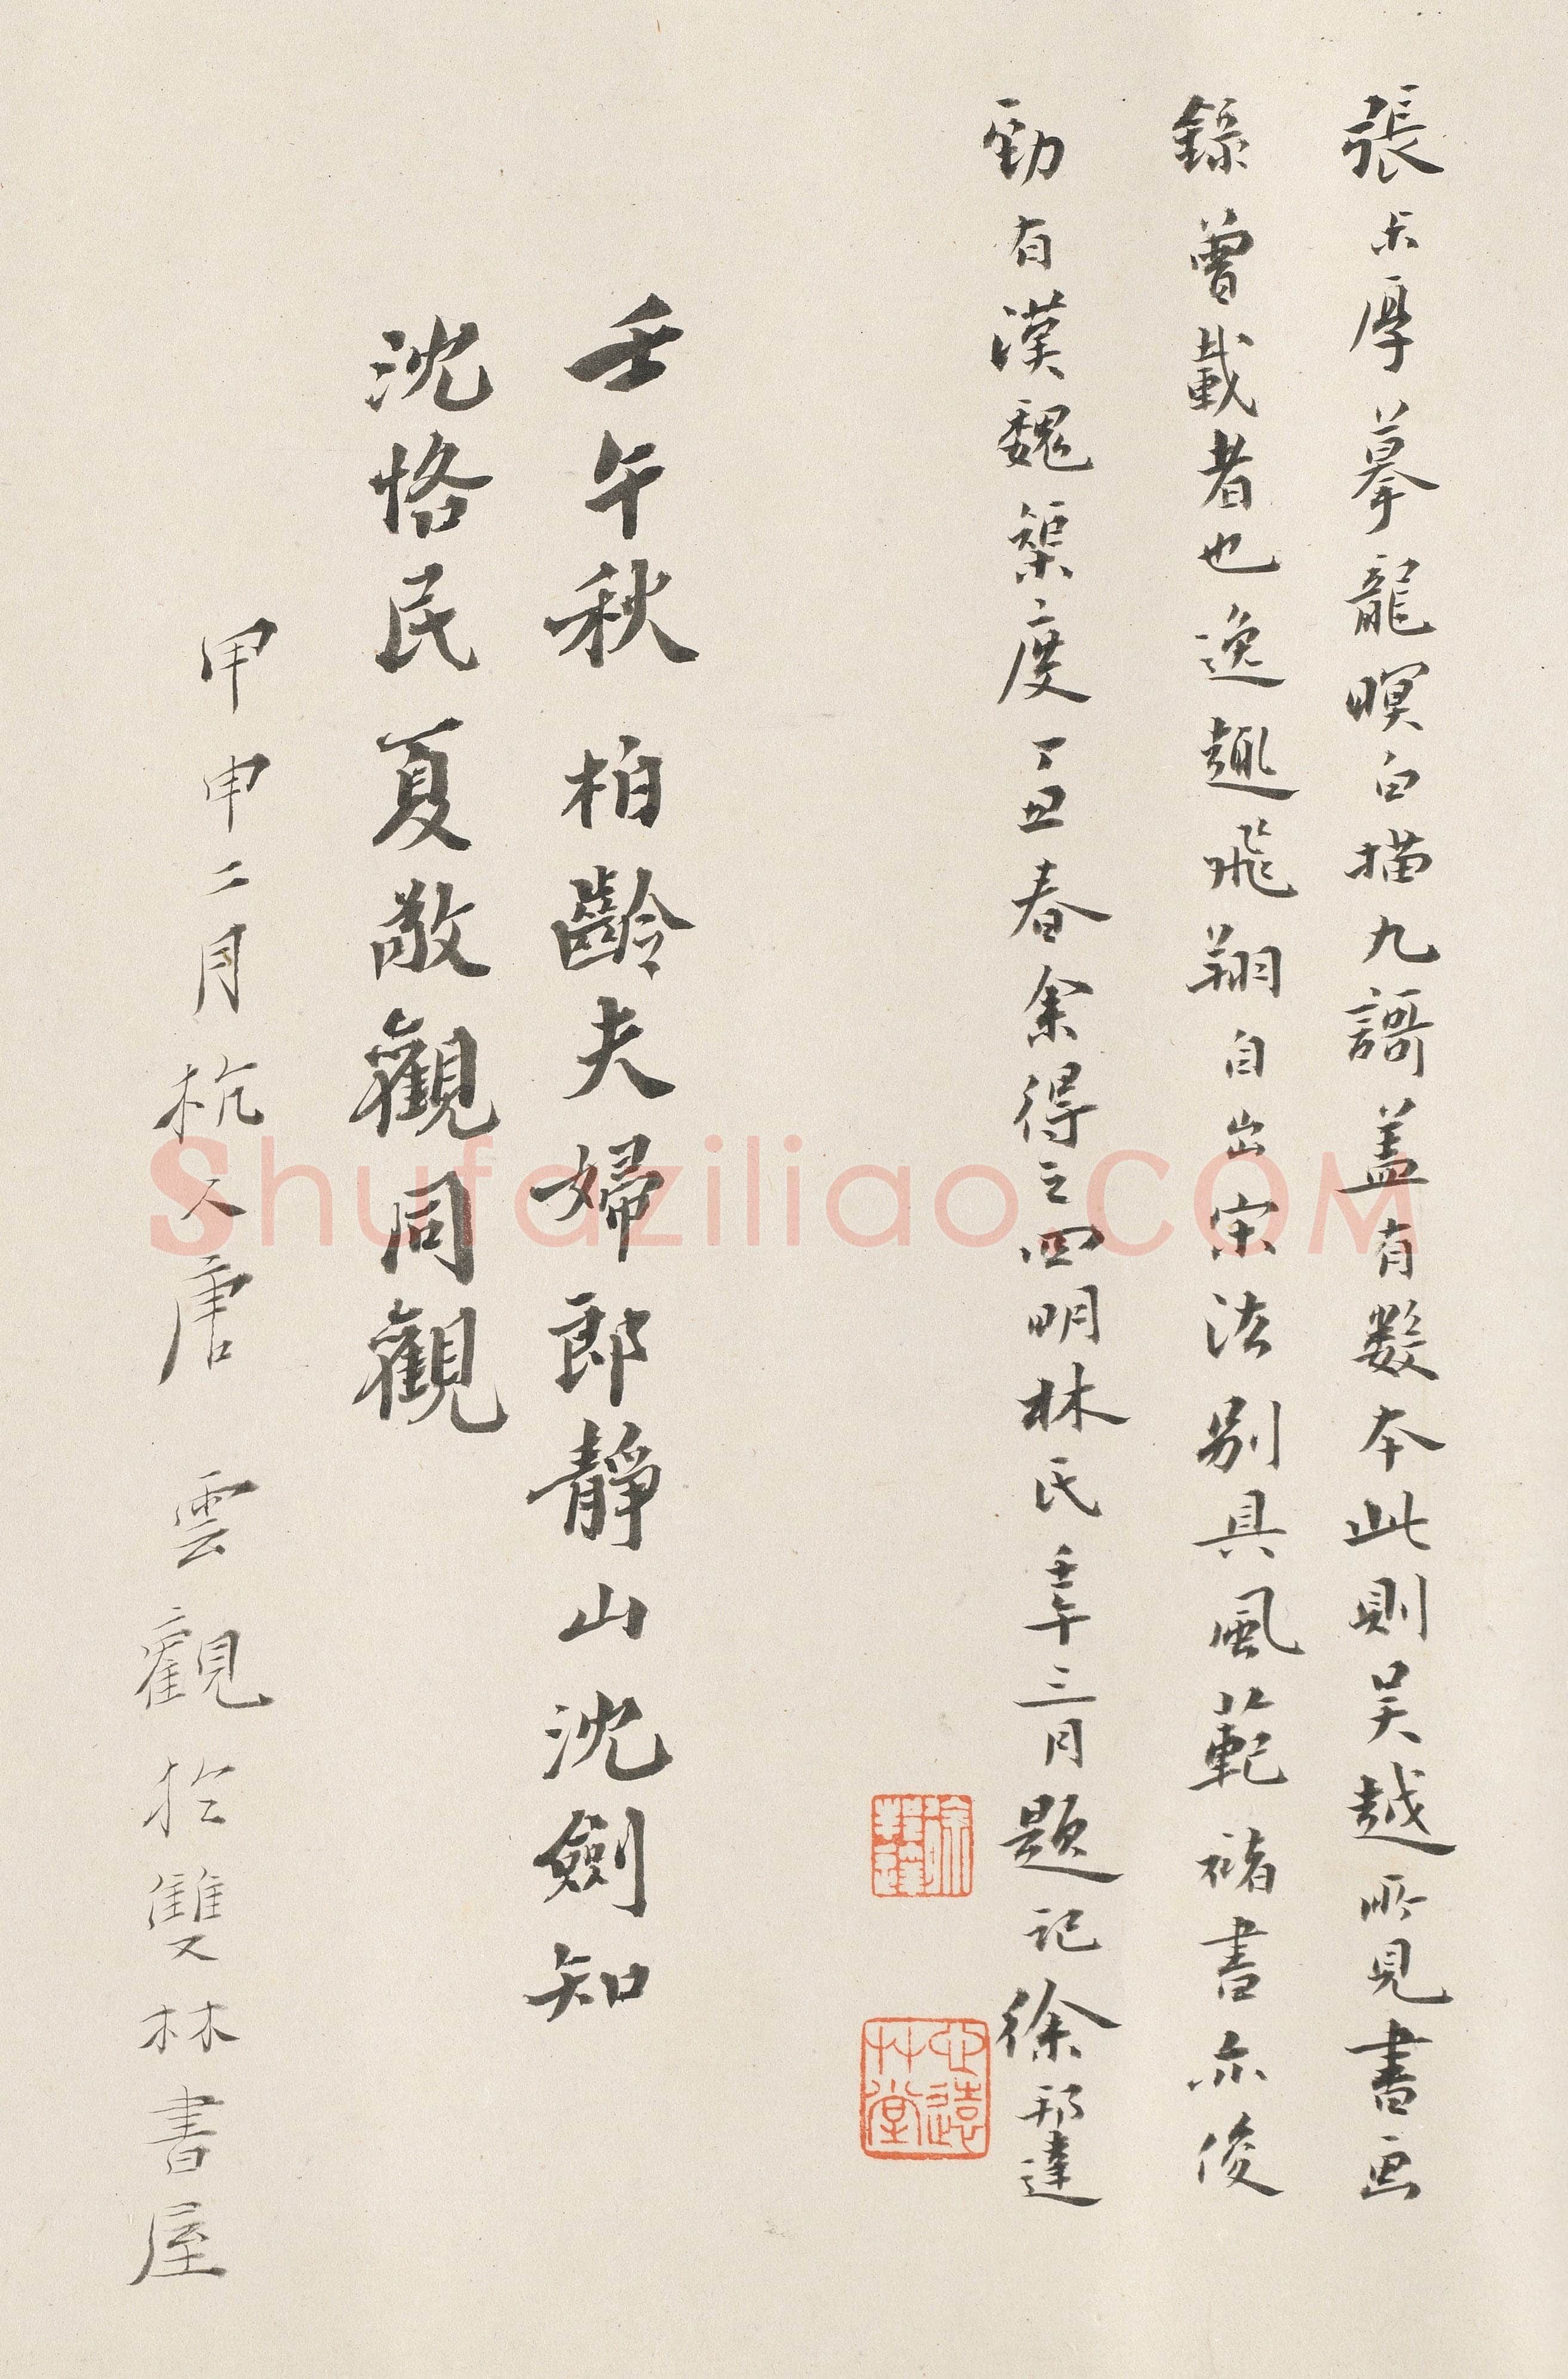 張未厚摹龍眠白描九謌盖有數本此則吴越所見書画
錄曾載者也逸趣飛翔自出宋法别具風範褚書亦俊
勁有漢魏榘度丁丑春余得之四明林氏壬午三月題記徐邦達
壬午秋柏齡夫婦郎靜山沈劍知
沈恪民夏敬觀同觀
甲申二月杭人唐雲觀於雙林書屋
心遠艸堂
Shufaziliao.COM